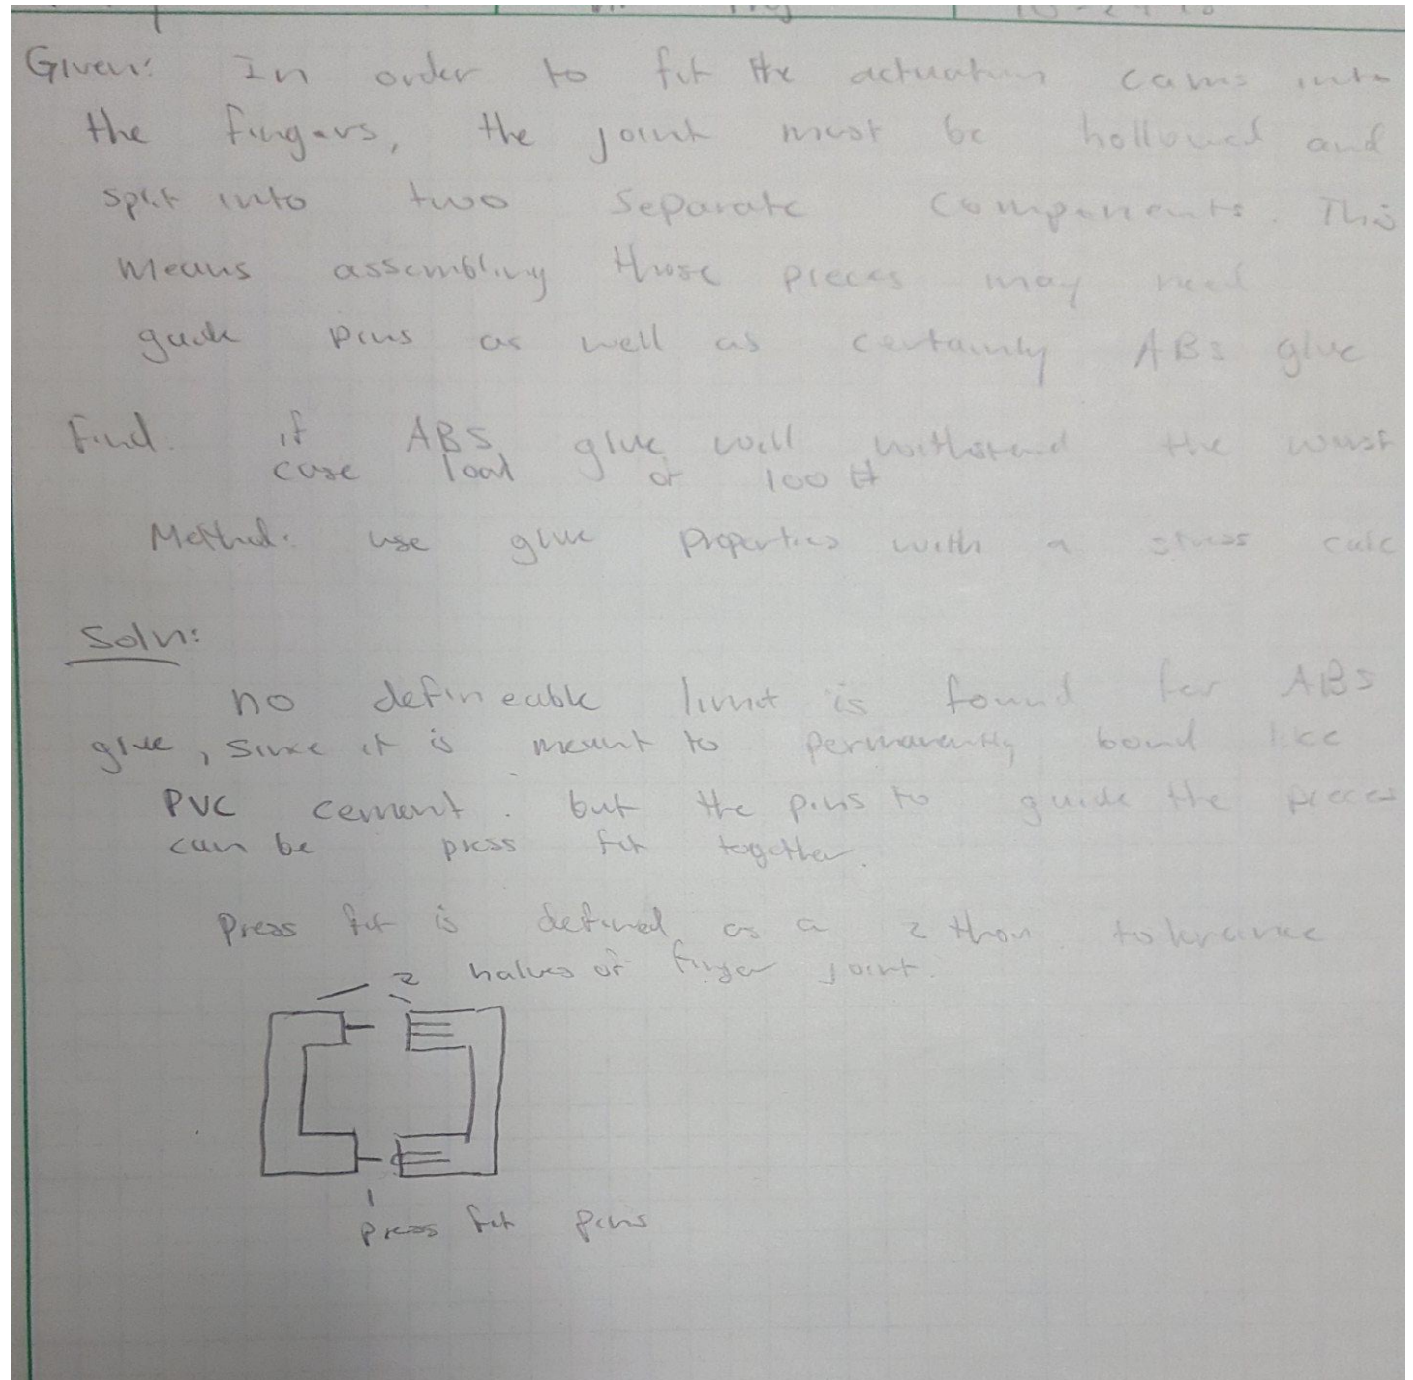 Given: In order to fit the actuation cams into
the fingers, the joint must be hollowed and
split into two separate components. This
means assembling those pieces may need
guide pins as well as certainly ABS glue
Find. if ABS glue will withstand the worst
case load of 100 #
Method: use glue properties with a stress calc
Soln:
no defineable limit is found for ABS
glue, since it is meant to permanently bond like
PVC cement. but the pins to guide the pieces
can be press fit together.
Press fit is defined as a 2 thou tolerance
2 halves of finger joint.
press fit pins